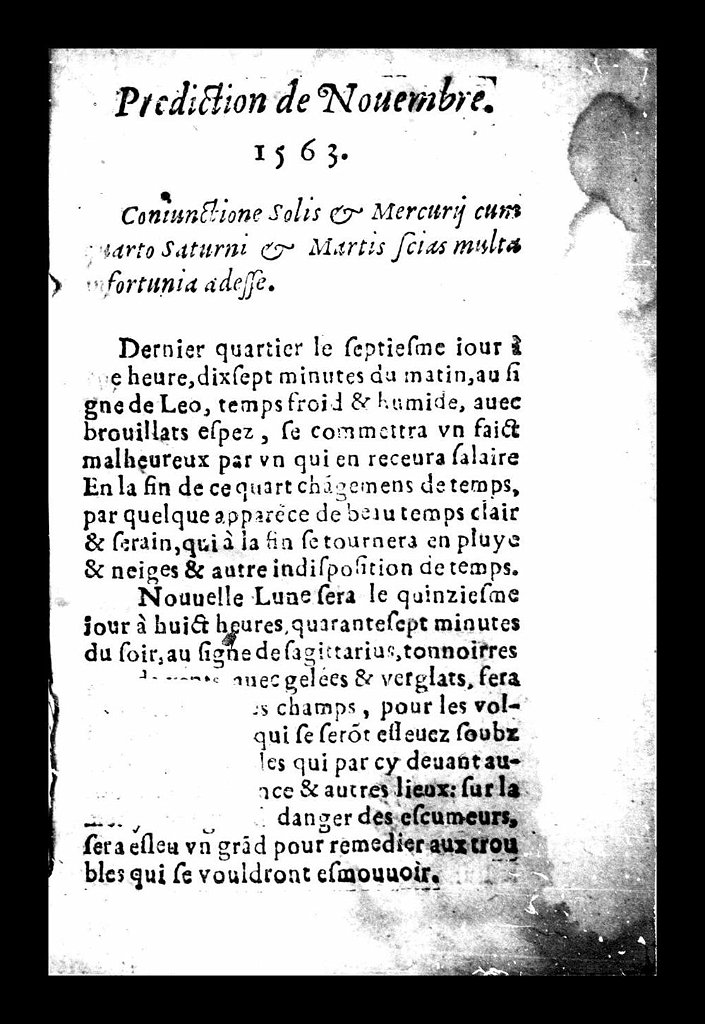 Prediction de Nouembre.
1563.
Coniunctione Solis & Mercurij cum
quarto Saturni & Martis ſcias multa
infortunia adeſſe.
Dernier quartier le ſeptieſme iour à
heure, dixſept minutes du matin, au ſi
gne de Leo, temps froid & humide, auec
brouillats eſpez, ſe commettra vn faict
malheureux par vn qui en receura ſalaire
En la fin de ce quart chãgemens de temps,
par quelque apparẽce de beau temps clair
& ſerain, qui à la fin ſe tournera en pluye
& neiges & autre indiſpoſition de temps.
Nouuelle Lune ſera le quinzieſme
iour à huict heures, quaranteſept minutes
du ſoir, au ſigne de ſagittarius, tonnoirres
auec gelées & verglats, ſera
champs, pour les vol-
qui ſe ſerõt eſleuez ſoubz
qui par cy deuant au-
& autres lieux: ſur la
danger des eſcumeurs,
ſera eſleu vn grãd pour remedier aux trou
bles qui ſe vouldront eſmouuoir.